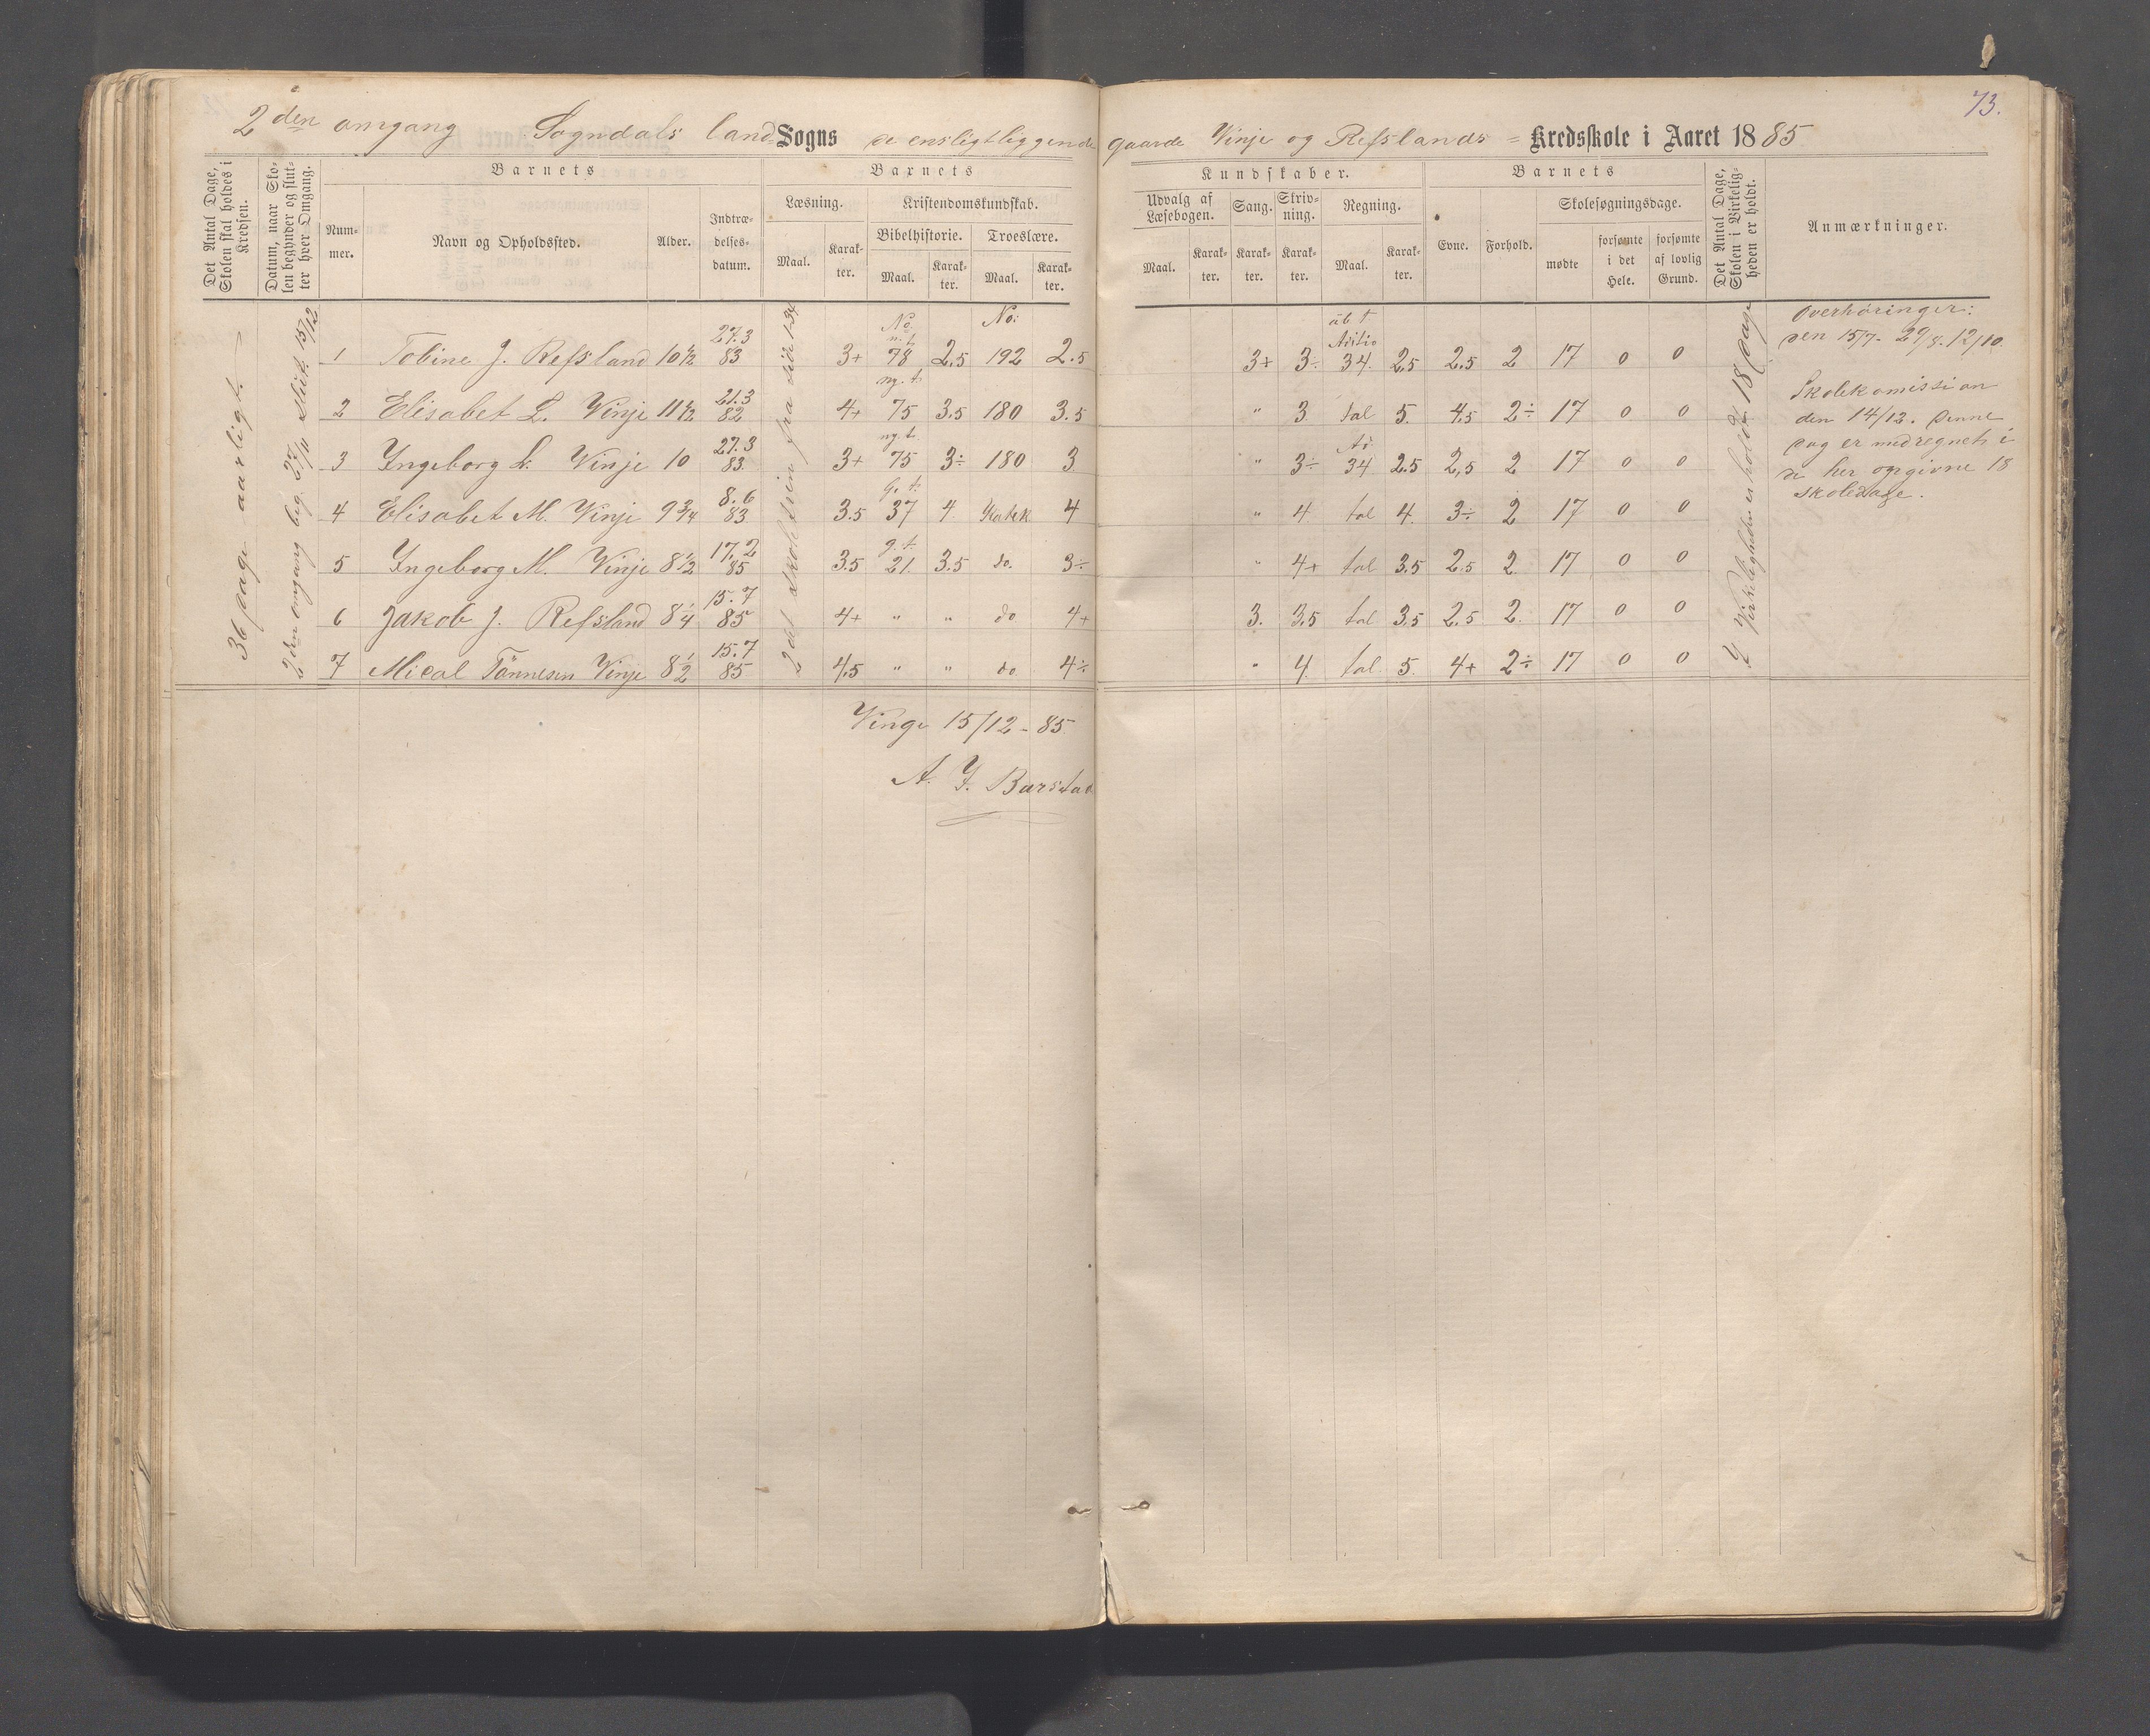 73.
2den omgang Sogndals land Sogns de ensligtliggende gaarde Vinje og Refslands = Kredsskole i Aaret 1885
Det Antal Dage, Skolen skal holdes i Kredsen.
Datum, naar Skolen begynder og slutter hver Omgang.
Barnets
Nummer.
Navn og Opholdssted.
Alder.
Indtrædelsesdatum.
Barnets
Læsning.
Maal.
Karakter.
Kristendomskundskab.
Bibelhistorie.
Maal.
Karakter.
Troeslære.
Maal.
Karakter.
Kundskaber.
Udvalg af Læsebogen.
Maal.
Karakter.
Sang.
Karakter.
Skrivning.
Karakter.
Regning.
Maal.
Karakter.
Barnets
Evne.
Forhold.
Skolesøgningsdage.
mødte
forsømte i det Hele.
forsømte af lovlig Grund.
Det Antal Dage, Skolen i Virkeligheden er holdt.
Anmærkninger.
36 dage aarligt.
2den omgang beg. 27/11 slut. 15/12
2det skoletrin fra side 1-34
1 Tobine J. Refsland 10 1/2 27.3 83 3+ No. n.t. 78 2.5 No: 192 2.5 3+ 3÷ 34. 2,5 2,5 2 17 0 0
2 Elisabet L. Vinje 11 1/2 21.3 82 4+ ny.t. 75 3.5 180 3.5 " 3 tal 5. 4,5 2÷ 17 0 0
3 Yngeborg L. Vinje 10 27.3 83 3+ ny.t. 75 3÷ 180 3 " 3÷ 34 2.5 2,5 2 17 0 0
4 Elisabet M. Vinje 9 3/4 8.6 83 3.5 G.t. 37 4 Katek 4 " 4 tal 4. 3÷ 2 17 0 0
5 Yngeborg M. Vinje 8 1/2 17.2 85 3.5 g.t. 21. 3.5 do. 3÷ " 4+ tal 3,5 2.5 2 17 0 0
6 Jakob J. Refsland 8 1/4 15.7 85 4+ " " do 4+ 3. 3,5 tal 3,5 2.5 2. 17 0 0
7 Mical Tönnesen Vinje 8 1/2 15.7 85 4,5 " " do 4÷ " 4. tal. 5. 4+ 2÷ 17 0 0
Y Virkeligheden er holdt 18 dage
Overhøringer:
den 15/7 - 29/8. 12/10.
Skolekomission
den 14/12. Denne
dag er medregnet i
de her opgivne 18
skoledage.
Vinge 15/12 - 85.
A. Y. Barstad